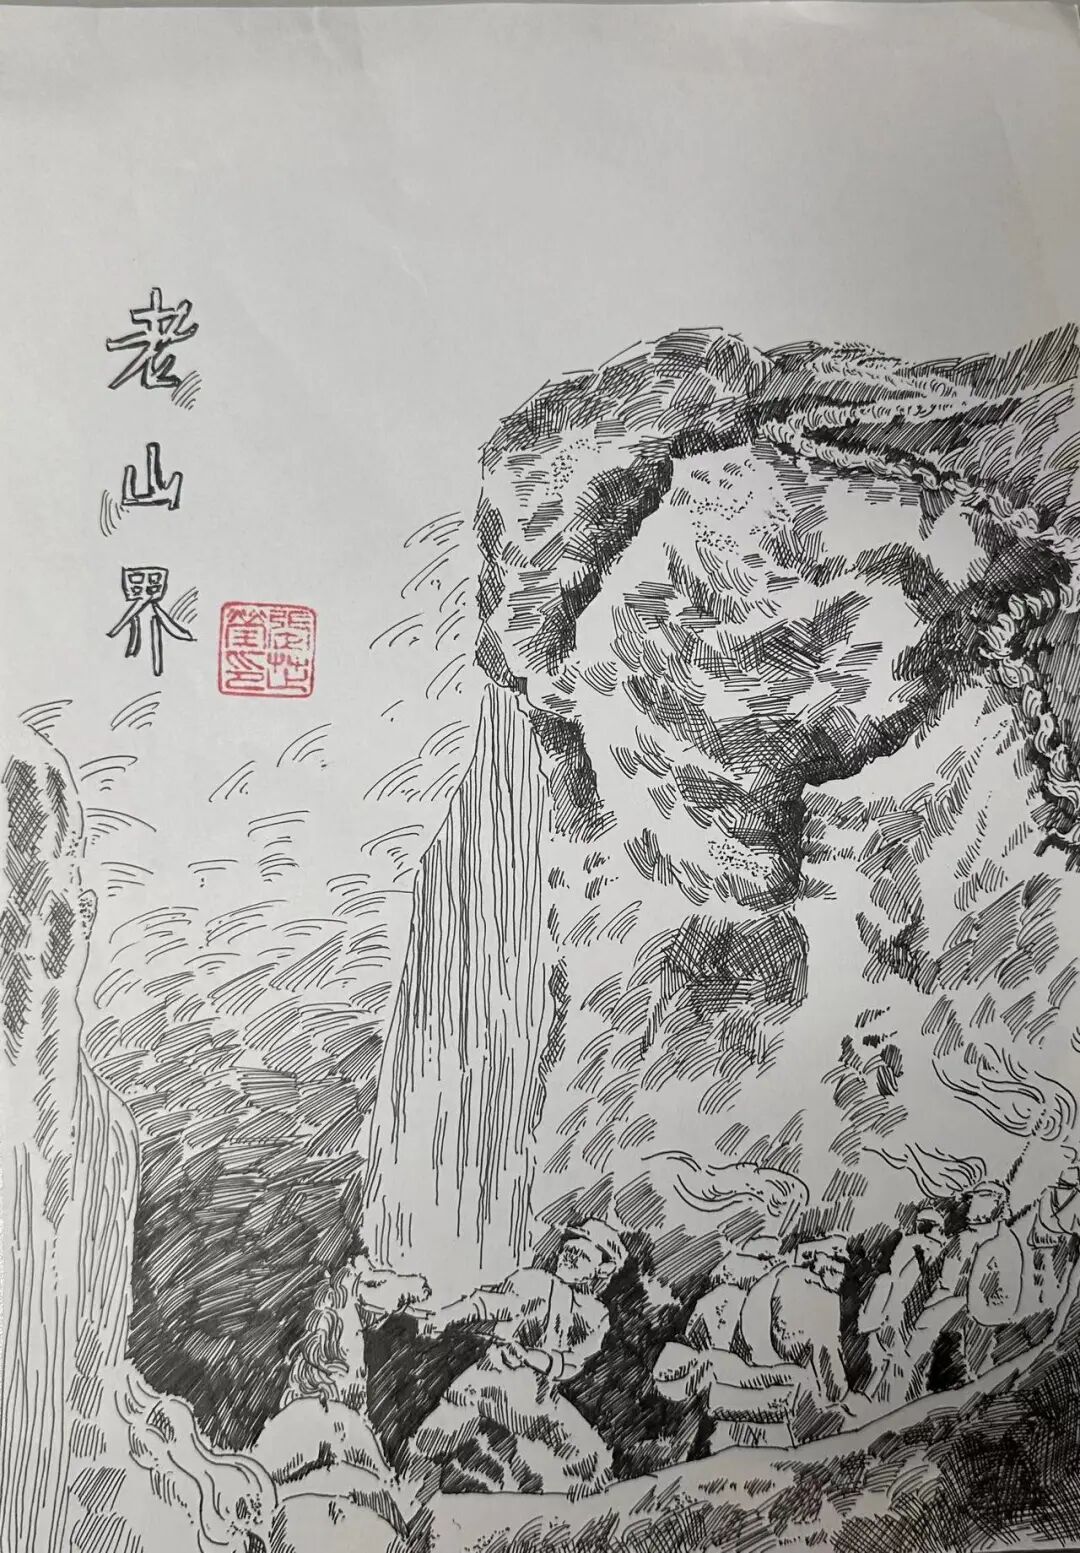 老山界